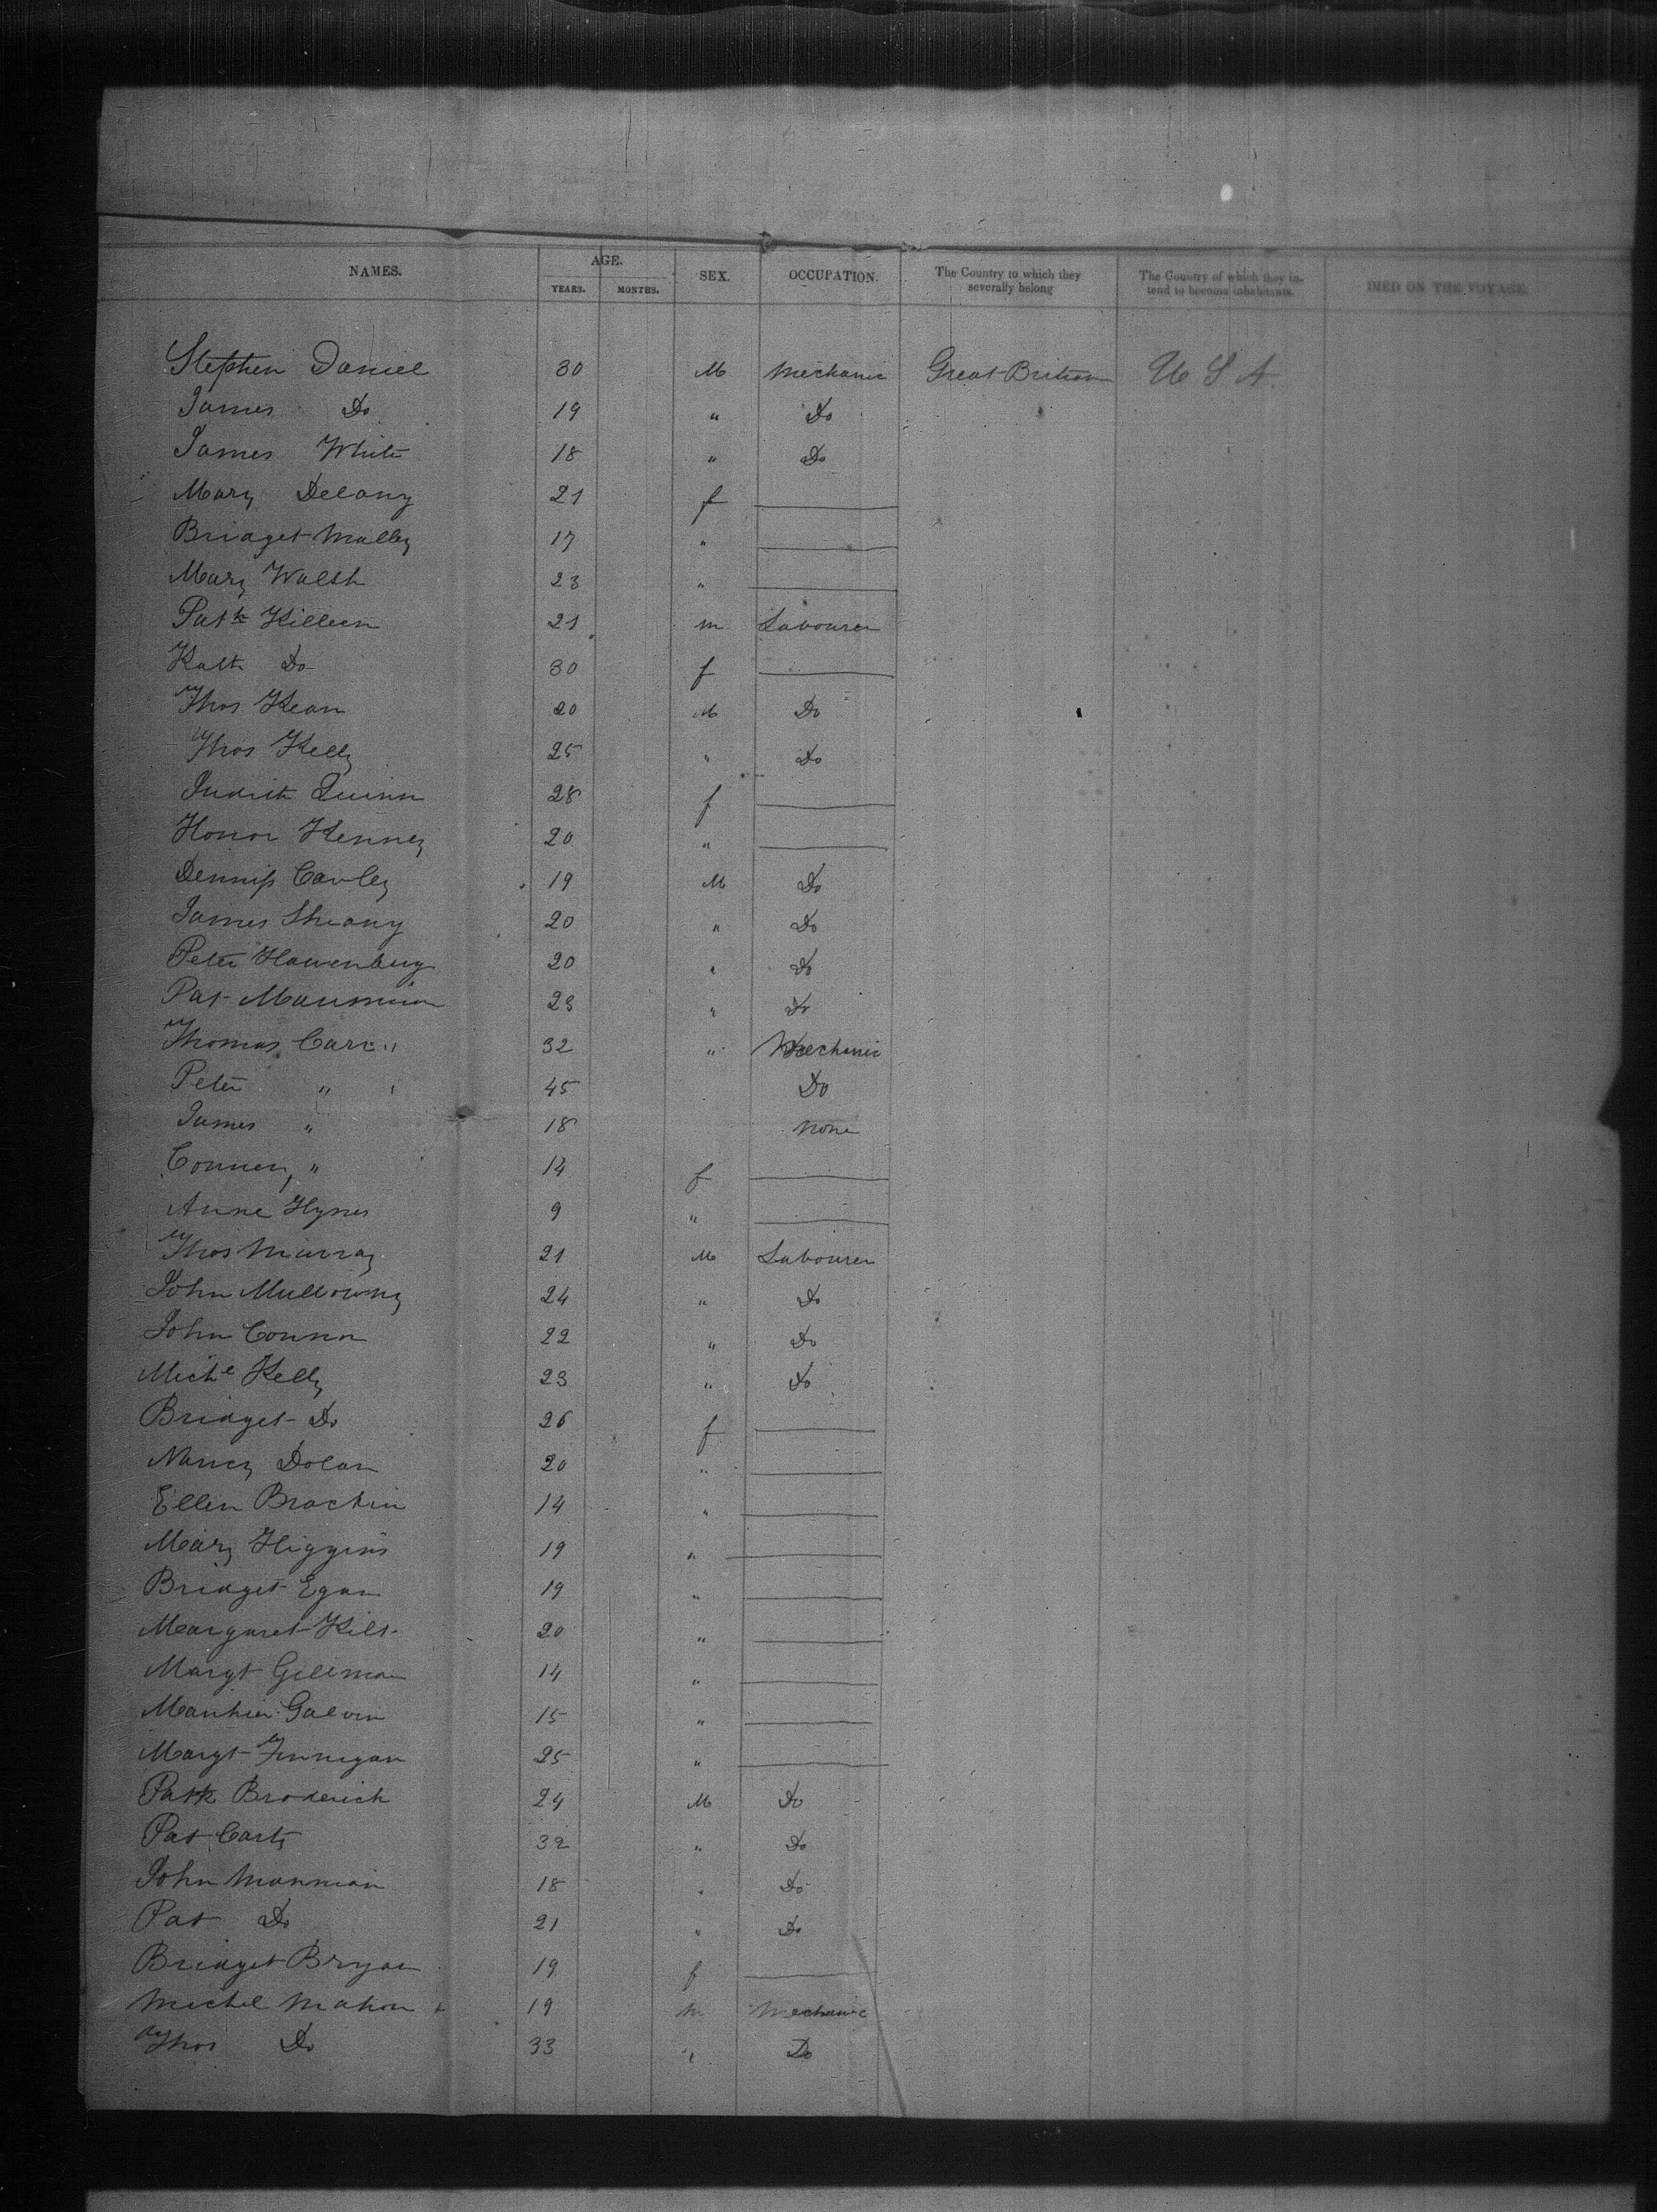 NAMES. AGE. YEARS. MONTHS. SEX. OCCUPATION. The Country to which they severally belong The Country of which they intend to become inhabitants. DIED ON THE VOYAGE.
Stephen Daniel 30 M Mechanic Great Britian U S A.
James Do 19 " Do
James White 18 " Do
Mary Delany 21 f
Bridget Malley 17 "
Mary Walsh 23 "
Patk Killeen 21 m Labourer
Kath Do 30 f
Thos Kean 20 M Do
Thos Kelly 25 " Do
Judith Quinn 28 f
Honor Kenney 20 "
Dennis Cauley 19 M Do
James Sheany 20 " Do
Peter 20 " Do
Pat 23 " Do
Thomas Carr 32 " Mechanic
Peter " 45 Do
James " 18 None
" 14 f
Anne Hynes 9 "
Thos Murray 21 M Labourer
John Mullowny 24 " Do
John Connor 22 " Do
Michl Kelly 23 " Do
Bridget Do 26 f
Nancy Dolan 20 "
Ellen Brackin 14 "
Mary Higgins 19 "
Bridget Egan 19 "
Margaret Kilt 20 "
Margt Gillman 14 "
Galvin 15 "
Margt Finnigan 25 "
Patk Broderick 24 M Do
Pat Carty 32 " Do
John Mannian 18 " Do
Pat Do 21 " Do
Bridget Bryan 19 f
Michel Mahon 19 m Mechanic
Thos Do 33 " Do